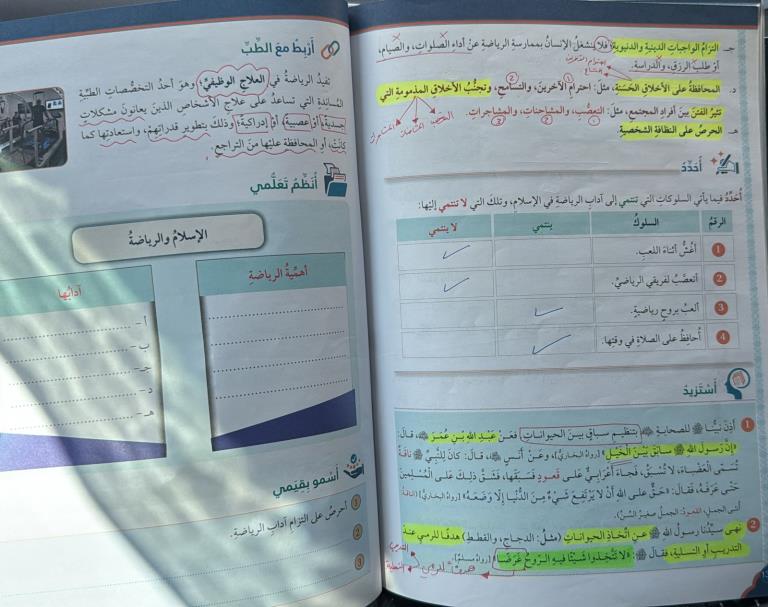 جـ. التزامُ الواجباتِ الدينيةِ والدنيويةِ؛ فلا ينشغلُ الإنسانُ بممارسةِ الرياضةِ عنْ أداءِ الصلواتِ، والصيامِ،
أوْ طلبِ الرزقِ، والدراسةِ.
د. المحافظةُ على الأخلاقِ الحَسَنَةِ، مثلُ: احترامِ الآخرينَ، والتسامحِ، وتجنُّبُ الأخلاقِ المذمومةِ التي
تثيرُ الفتنَ بينَ أفرادِ المجتمعِ، مثلُ: التعصُّبِ، والمشاحناتِ، والمشاجراتِ.
هـ. الحرصُ على النظافةِ الشخصيةِ.
أُحَدِّدُ
أُحَدِّدُ فيما يأتي السلوكاتِ التي تنتمي إلى آدابِ الرياضةِ في الإسلامِ، وتلكَ التي لا تنتمي إليْها:
الرقمُ السلوكُ ينتمي لا ينتمي
1 أغُشُّ أثناءَ اللعبِ. ✓
2 أتعصَّبُ لفريقي الرياضيِّ. ✓
3 ألعبُ بروحٍ رياضيةٍ. ✓
4 أُحافِظُ على الصلاةِ في وقتِها. ✓
أَسْتَزيدُ
1 أَذِنَ نبيُّنا ﷺ للصحابةِ ﷺ بتنظيمِ سباقٍ بينَ الحيواناتِ، فعَنْ عبدِ اللهِ بْنِ عُمَرَ ﷺ، قالَ:
«إنَّ رسولَ اللهِ ﷺ سابَقَ بَيْنَ الخَيْلِ» [رواهُ البخاريُّ]، وعَنْ أنَسٍ ﷺ، قالَ: كانَ لِلنَّبِيِّ ﷺ ناقةٌ
تُسَمَّى العَضْباءَ، لا تُسْبَقُ، فجاءَ أعرابيٌّ على قَعودٍ فسَبَقَها، فشَقَّ ذلِكَ على المُسْلِمينَ
حَتّى عَرَفَهُ، فقالَ: «حَقٌّ على اللهِ أنْ لا يَرْتَفِعَ شَيْءٌ مِنَ الدُّنْيا إلّا وَضَعَهُ» [رواهُ البخاريُّ] (الناقةُ:
أنثى الجملِ، القعودُ: الجملُ صغيرُ السنِّ).
2 نهى سيِّدُنا رسولُ اللهِ ﷺ عنِ اتِّخاذِ الحيواناتِ (مثلُ: الدجاجِ، والقططِ) هدفًا للرميِ عندَ
التدريبِ أوِ التسليةِ، فقالَ ﷺ: «لا تَتَّخِذوا شَيْئًا فيهِ الرّوحُ غَرَضًا» [رواهُ مسلمٌ].
أَرْبِطُ معَ الطِّبِّ
تفيدُ الرياضةُ في العلاجِ الوظيفيِّ؛ وهوَ أحدُ التخصُّصاتِ الطبِّيةِ
المُساندةِ التي تساعدُ على علاجِ الأشخاصِ الذينَ يعانونَ مشكلاتٍ
جسديةً، أوْ عصبيةً، أوْ إدراكيةً؛ وذلكَ بتطويرِ قدراتِهِمْ، واستعادتِها كما
كانَتْ، أو المحافظةِ عليْها منَ التراجعِ.
أُنَظِّمُ تَعَلُّمي
الإسلامُ والرياضةُ
أهمِّيةُ الرياضةِ
آدابُها
أ-
ب-
جـ-
د-
هـ-
أَسْمو بِقِيَمي
1 أحرصُ على التزامِ آدابِ الرياضةِ.
2
3